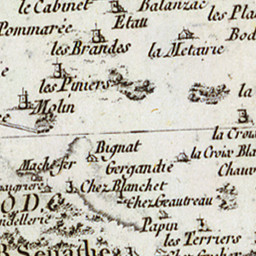 le Cabinet
Balanzac
Etau
les Pla
Pommarée
les Brandes
la Metairie
Bod
les Piniers
la
Molin
la Croix
Bignat
la Croix Bla
Machefer
Gergandie
Chauv
Chez Blanchet
O.D.
Chez Geautreau
Papin
les Terriers